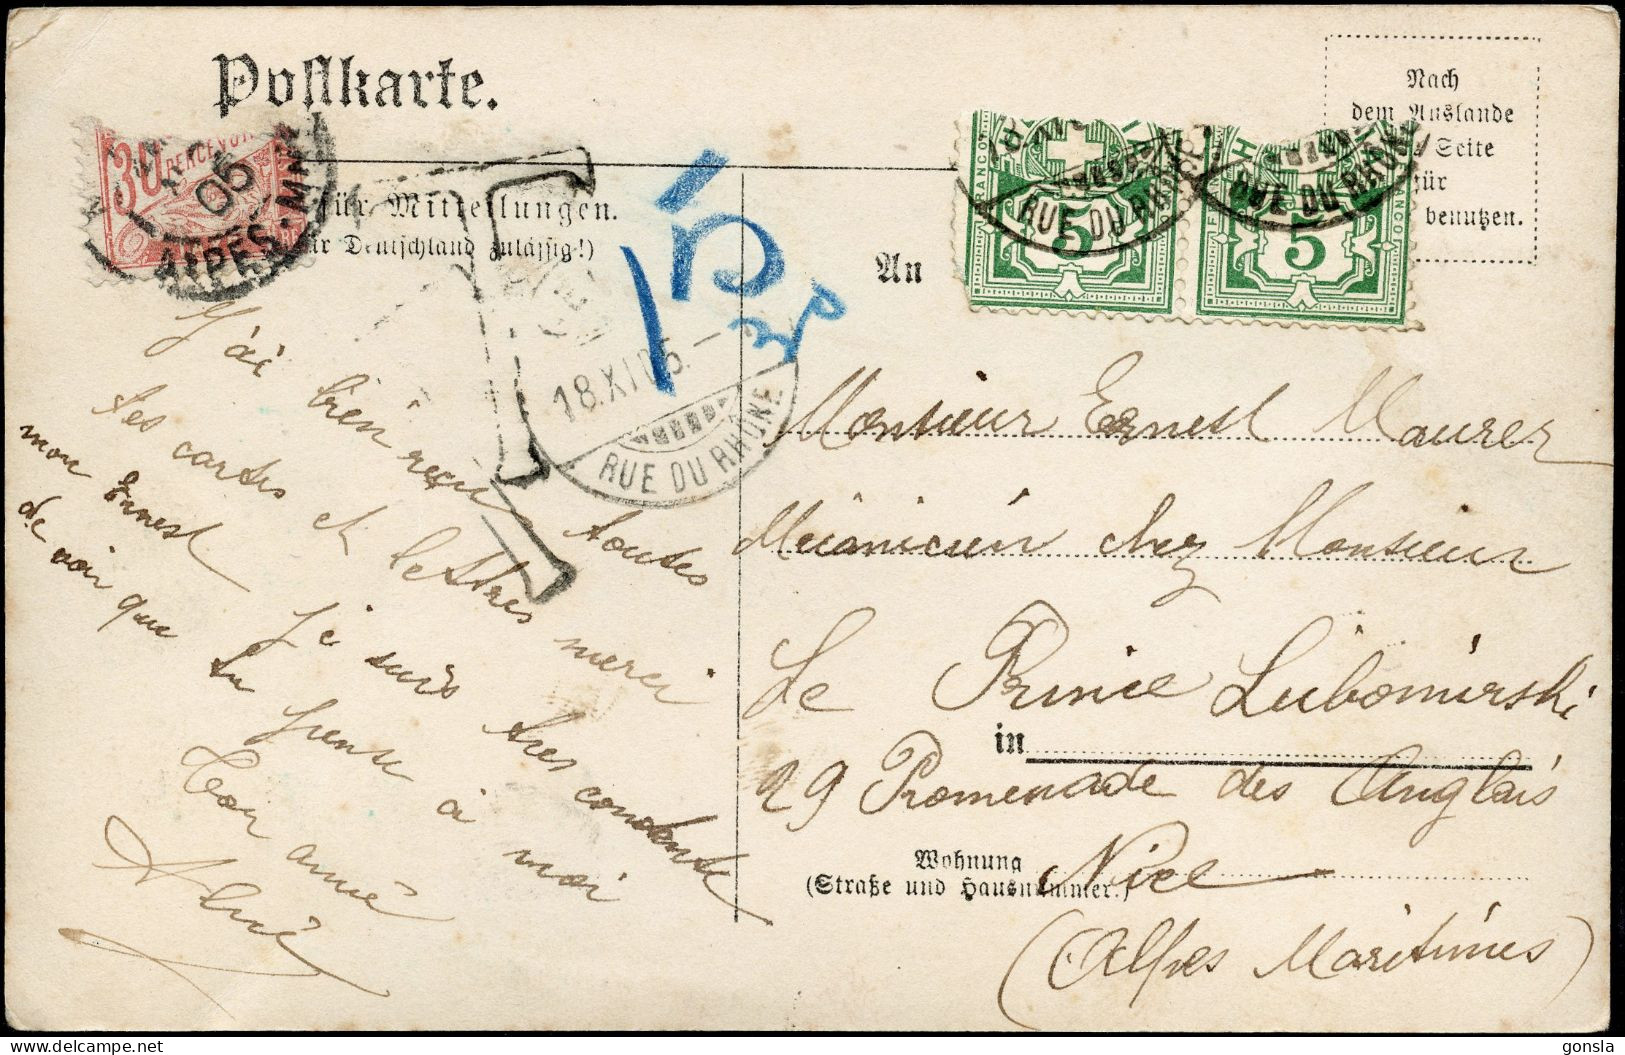 Postkarte.
Nach
dem Auslande
Seite
für
benutzen.
30
PERCEVOIR
05
ALPES-M
für Mitteilungen.
für Deutschland zulässig!)
T
15
18.XI.05.
RUE DU RHÔNE
An
FRANCO
5
RUE DU RHÔNE
5
RUE DU RHÔNE
FRANCO
J'ai bien reçu toutes
tes cartes et lettres merci
mon Ernest Je suis tres contente
de voir que tu pense à moi
Ton amie
Monsieur Ernest Maurer
Mécanicien chez Monsieur
Le Prince Lubomirski
in
29 Promenade des Anglais
Wohnung
(Straße und Hausnummer.)
Nice
(Alpes Maritimes)
gonsla